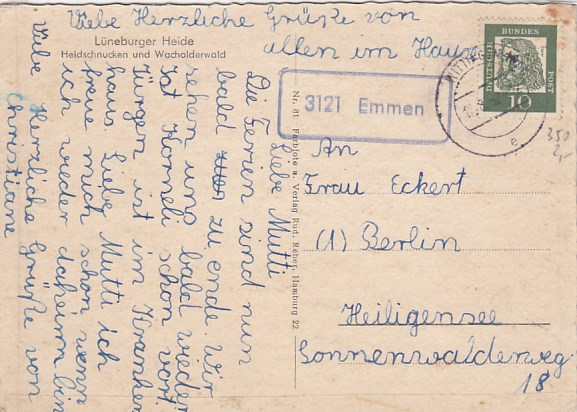 Liebe Herzliche Grüße von
allen im Hause
Lüneburger Heide
Heidschnucken und Wacholderwald
3121 Emmen
DEUTSCHE
BUNDES
POST
10
e
350
2,-
Nr. 81 Farbfoto u. Verlag Rud. Reher, Hamburg 22
An
Frau Eckert
(1) Berlin
Heiligensee
Sonnenwalderweg
18
Liebe Mutti
Die Ferien sind nun
bald zu ende. Wir
sehen uns bald wieder
ist Korneli schon vort.
Jürgen ist im Kranken
haus. Liebe Mutti ich
freue mich schon wenn
ich weder daheim bin
Liebe Herzliche Grüße von
Christiane